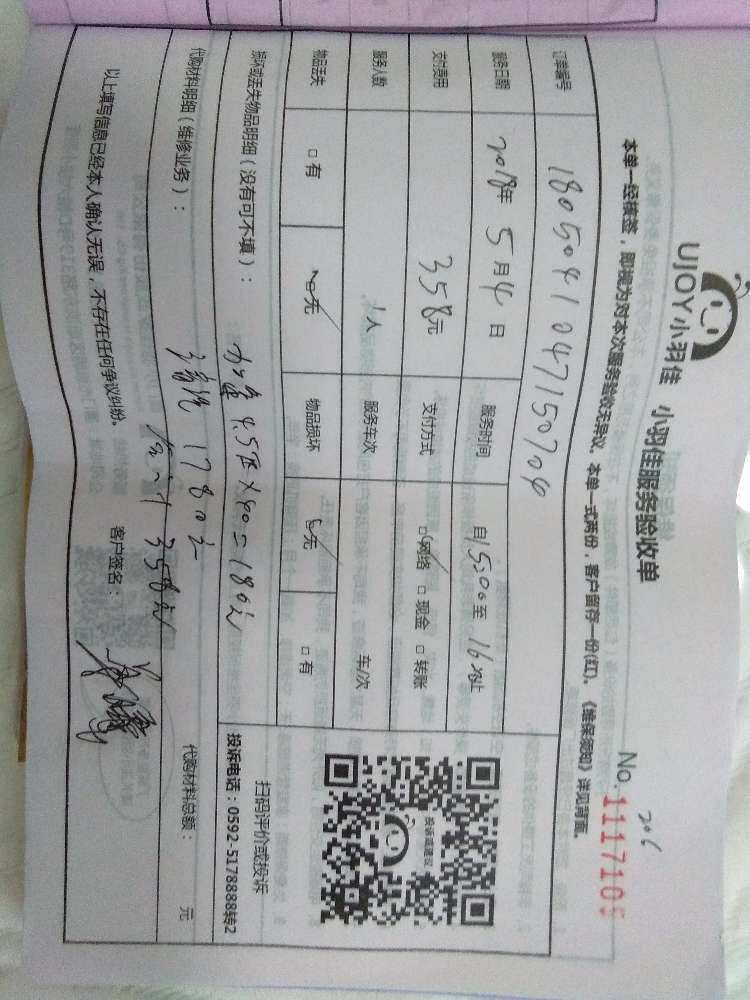 UJOY小羽佳 小羽佳服务验收单
206
No.1117105
本单一经核签，即视为对本次服务验收无异议。本单一式两份，客户留存一份(红)。《维保须知》详见背面。
订单编号 180504104715070
服务日期 2018年 5月4日 服务时间 自15:00至 16:00止
支付费用 358元 支付方式 ☑网络 □现金 □转账
服务人数 1人 服务车次 车/次
物品丢失 □有 ☑无 物品损坏 ☑无 □有
损坏或丢失物品明细（没有可不填）： 4.5 × 40 = 180元
178元
合计 358元
代购材料明细（维修业务）： 代购材料总额： 元
以上填写信息已经本人确认无误，不存在任何争议纠纷。 客户签名：
投诉或建议
扫码评价或投诉
投诉电话：0592-5178888转2